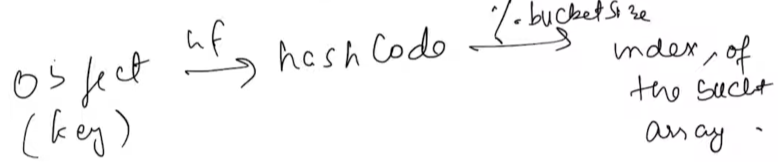 object hf → hashCode % bucketSize → index of
(key) the bucket
array.